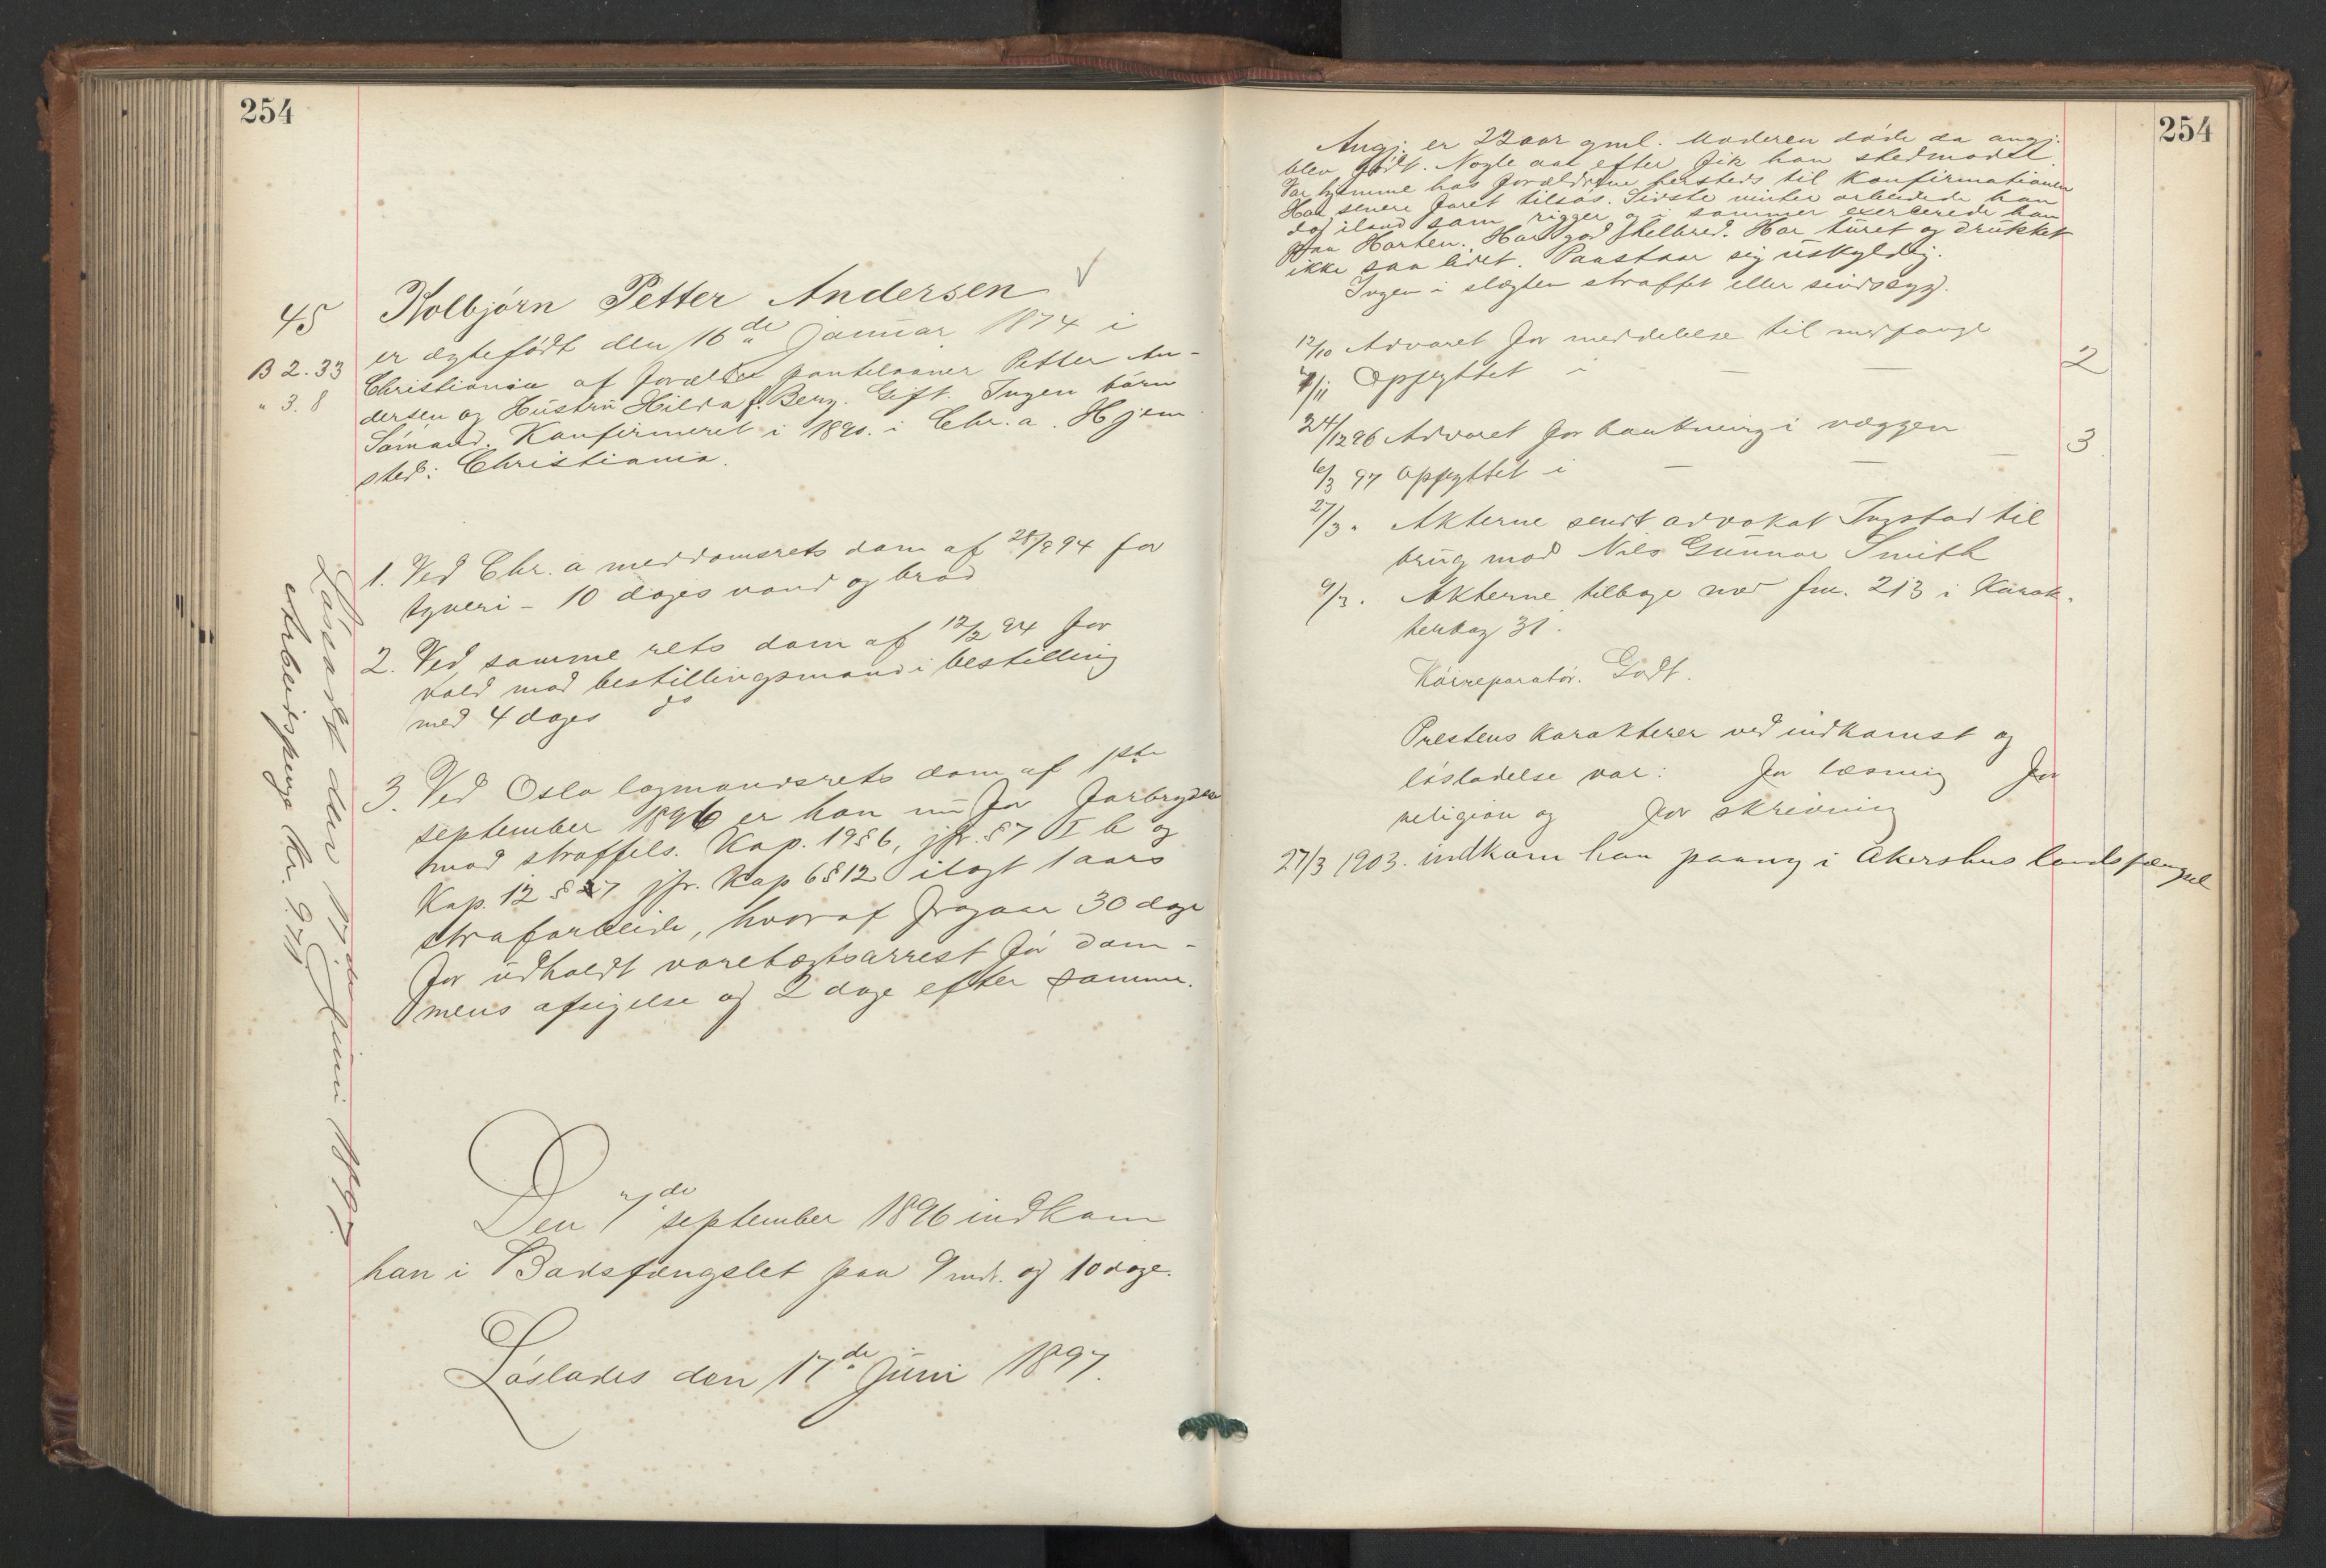 254
45 Kolbjørn Petter Andersen
er ægtefødt den 16de januar 1874 i
B 2.33 Christiania af forældre pantelaaner Petter An-
" 3.8 dersen og Hustru Hilda f. Berg. Gift. Ingen børn
Sømand. Konfirmeret i 1890. i Chr.a. Hjem
sted: Christiania.
1. Ved Chr.a meddomsrets dom af 28/9 94 for
tyveri - 10 dages vand og brød
2. Ved samme rets dom af 12/2 94 for
vold mod bestillingsmand i bestilling
med 4 dages do
3. Ved Oslo lagmandsrets dom af 1ste
september 1896 er han nu for forbrydelse
mod straffels. Kap. 19 § 6, jfr. § 7 I b og
Kap. 12 § 7 jfr. Kap 6 § 12 ilagt 1 aars
strafarbeide, hvoraf fragaar 30 dage
for udholdt varetægtsarrest før dom-
mens afsigelse og 2 dage efter samme.
Den 7de september 1896 indkom
han i Bodsfængslet paa 9 mdr. og 10 dage.
Løslades den 17de juni 1897.
Løsladt den 17de Juni 1897.
Arbeidspenge Kr.
254
Angj. er 22 aar gml. Moderen døde da angj.
blev født. Nogle aar efter fik han stedmoder.
Var hjemme hos forældrene hersteds til Konfirmationen
Har senere faret tilsøs. Sidste vinter arbeidede han
dog iland som rigger og i sommer exercerede han
paa Horten. Har god helbred. Har turet og drukket
ikke saa lidet. Paastaar sig uskyldig.
Ingen i slægten straffet eller sindssyg.
12/10 Advaret for meddelelse til medfange
7/11 Opflyttet i — — 2
24/12 96 Advaret for bankning i væggen
6/3 97 Opflyttet i — — — 3
27/3 " Akterne sendt advokat Ingstad til
brug mod Nils Gunnar Smith
9/3 . Akterne tilbage med fm. 213 i Karak-
terbog 31.
Køireparatør. Godt.
Prestens karakterer ved indkomst og
løsladelse var: for læsning for
religion og for skrivning
27/3 1903. indkom han paany i Akershus landsfængsel